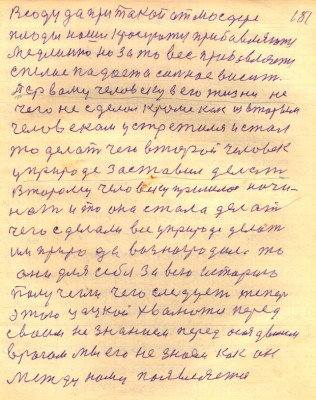 В саду да при такой атмосфере 181
плоды наши кроскроту прибавляют
медленно но за то вес прибавляют
спелое падает а сипкае висит.
Первому человеку в его жизни не
чего не сделал кроме как из вторым
человекам устретился и стал
то делат чего второй человек
у природе заставил делат
Второму человеку пришлос начи-
нат и то она стала делат
чего сделали все у природе делат
им природа вознагродила то
они для себя за всю историю
получели чего следует тепер
этого цацкой хвалюти перед
своим не знанием перед осядвшим
врагом мы его не знаем как он
между нами появляется